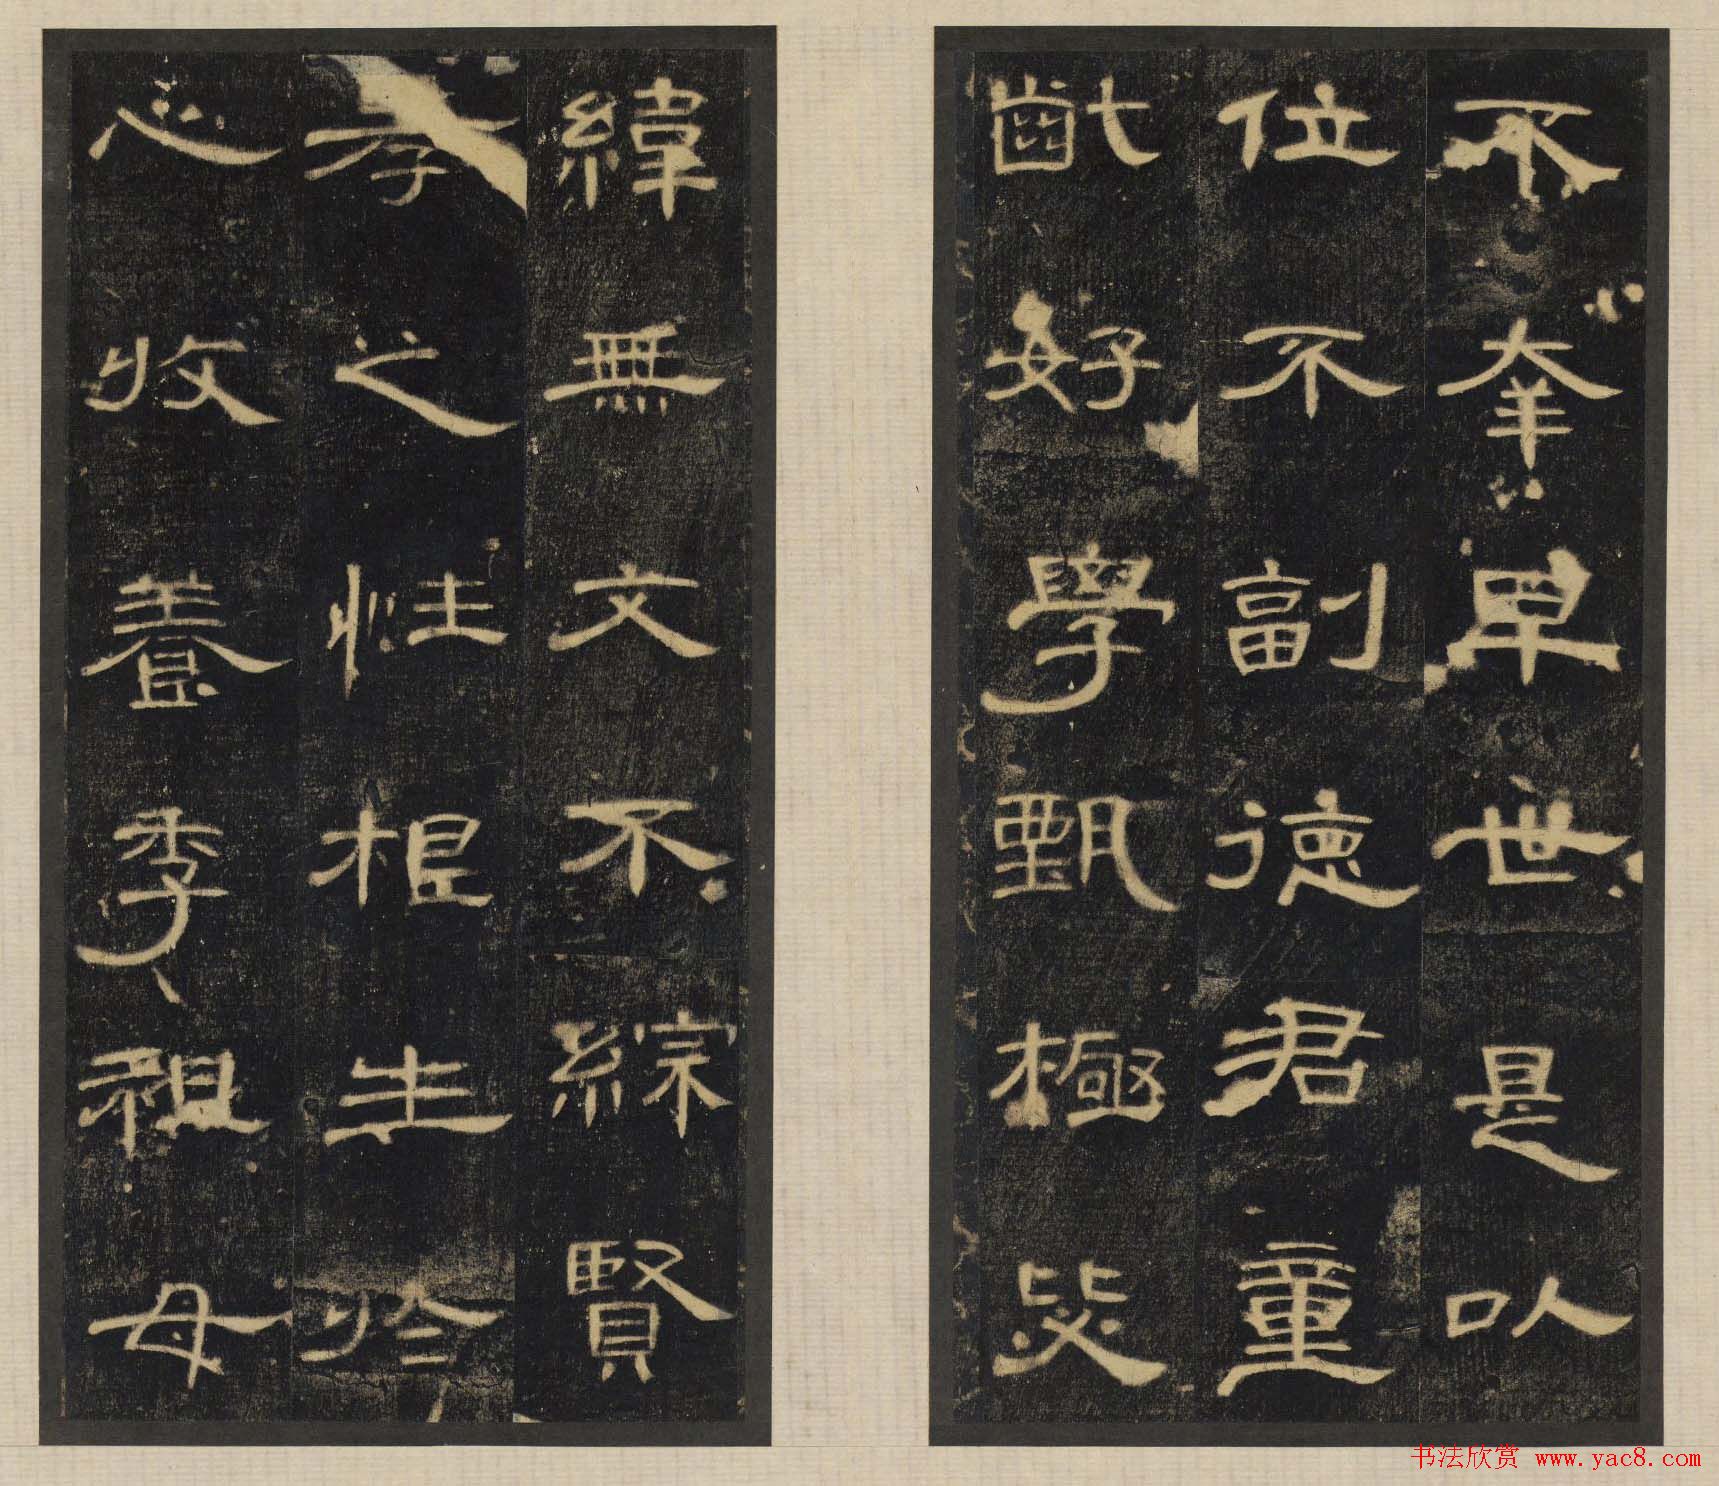 不夆早世是以
位不副德君童
齔好學甄極毖
緯無文不綜賢
孝之性根生於
心收養季祖母
书法欣赏 www.yac8.com